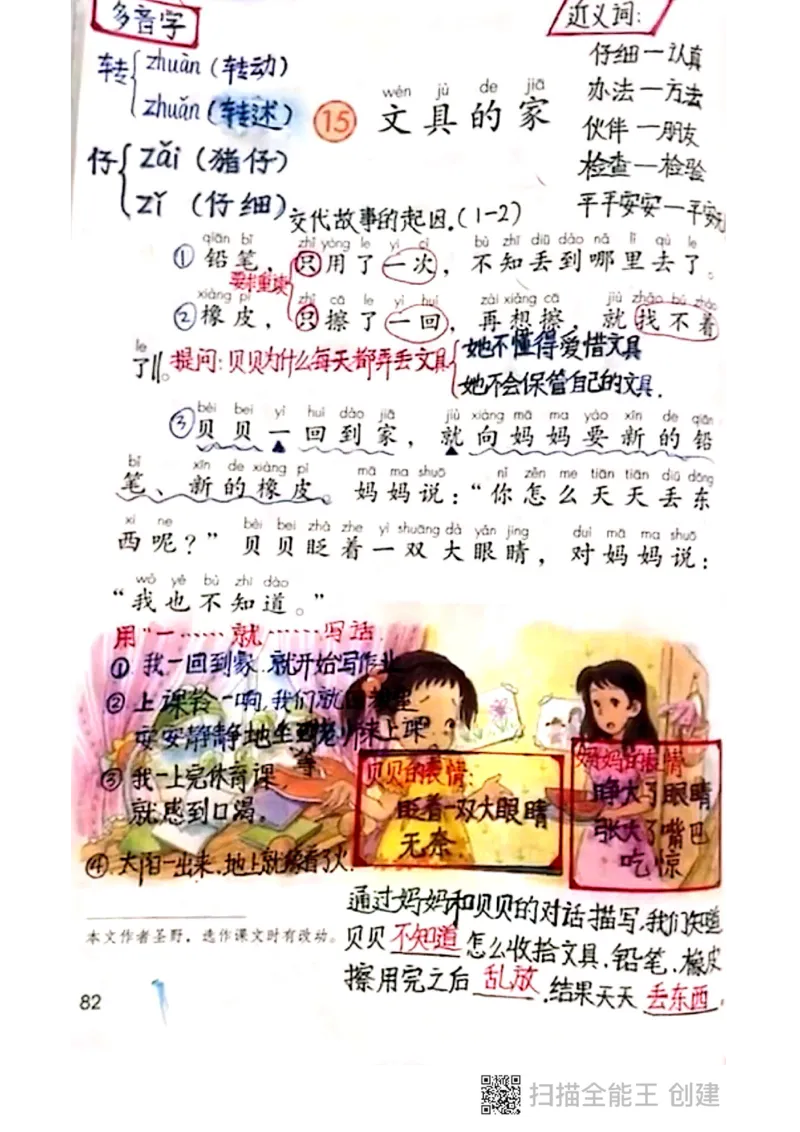 多音字
转 zhuàn（转动）
zhuǎn（转述）
仔 zǎi（猪仔）
zǐ（仔细）
近义词:
仔细—认真
办法—方法
伙伴—朋友
检查—检验
平平安安—平安
wén jù de jiā
15 文具的家
交代故事的起因。(1-2)
qiān bǐ zhǐ yòng le yí cì bù zhī diū dào nǎ lǐ qù le
①铅笔，只用了一次，不知丢到哪里去了。
要求重读
xiàng pí zhǐ cā le yì huí zài xiǎng cā jiù zhǎo bù zháo
②橡皮，只擦了一回，再想擦，就找不着
le
了‖。
提问:贝贝为什么每天都弄丢文具
她不懂得爱惜文具
她不会保管自己的文具.
bèi bei yì huí dào jiā jiù xiàng mā ma yào xīn de qiān
③贝贝一回到家，就向妈妈要新的铅
bǐ xīn de xiàng pí mā ma shuō nǐ zěn me tiān tiān diū dōng
笔、新的橡皮。妈妈说：“你怎么天天丢东
xi ne bèi bei zhǎ zhe yì shuāng dà yǎn jing duì mā ma shuō
西呢？”贝贝眨着一双大眼睛，对妈妈说：
wǒ yě bù zhī dào
“我也不知道。”
用“一……就……写话.
①.我一回到家.就开始写作业
②上课铃一响,我们就回教室
安安静静地坐 等老师来上课
③我一上完体育课
就感到口渴。
④.太阳一出来,地上就像着了火.
贝贝的表情:
眨着一双大眼睛
无奈.
妈妈的表情
睁大了眼睛
张大了嘴巴
吃惊
通过妈妈和贝贝的对话描写,我们知道
贝贝不知道怎么收拾文具.铅笔、橡皮
擦用完之后 乱放 .结果天天 丢东西.
本文作者圣野，选作课文时有改动。
82
扫描全能王 创建